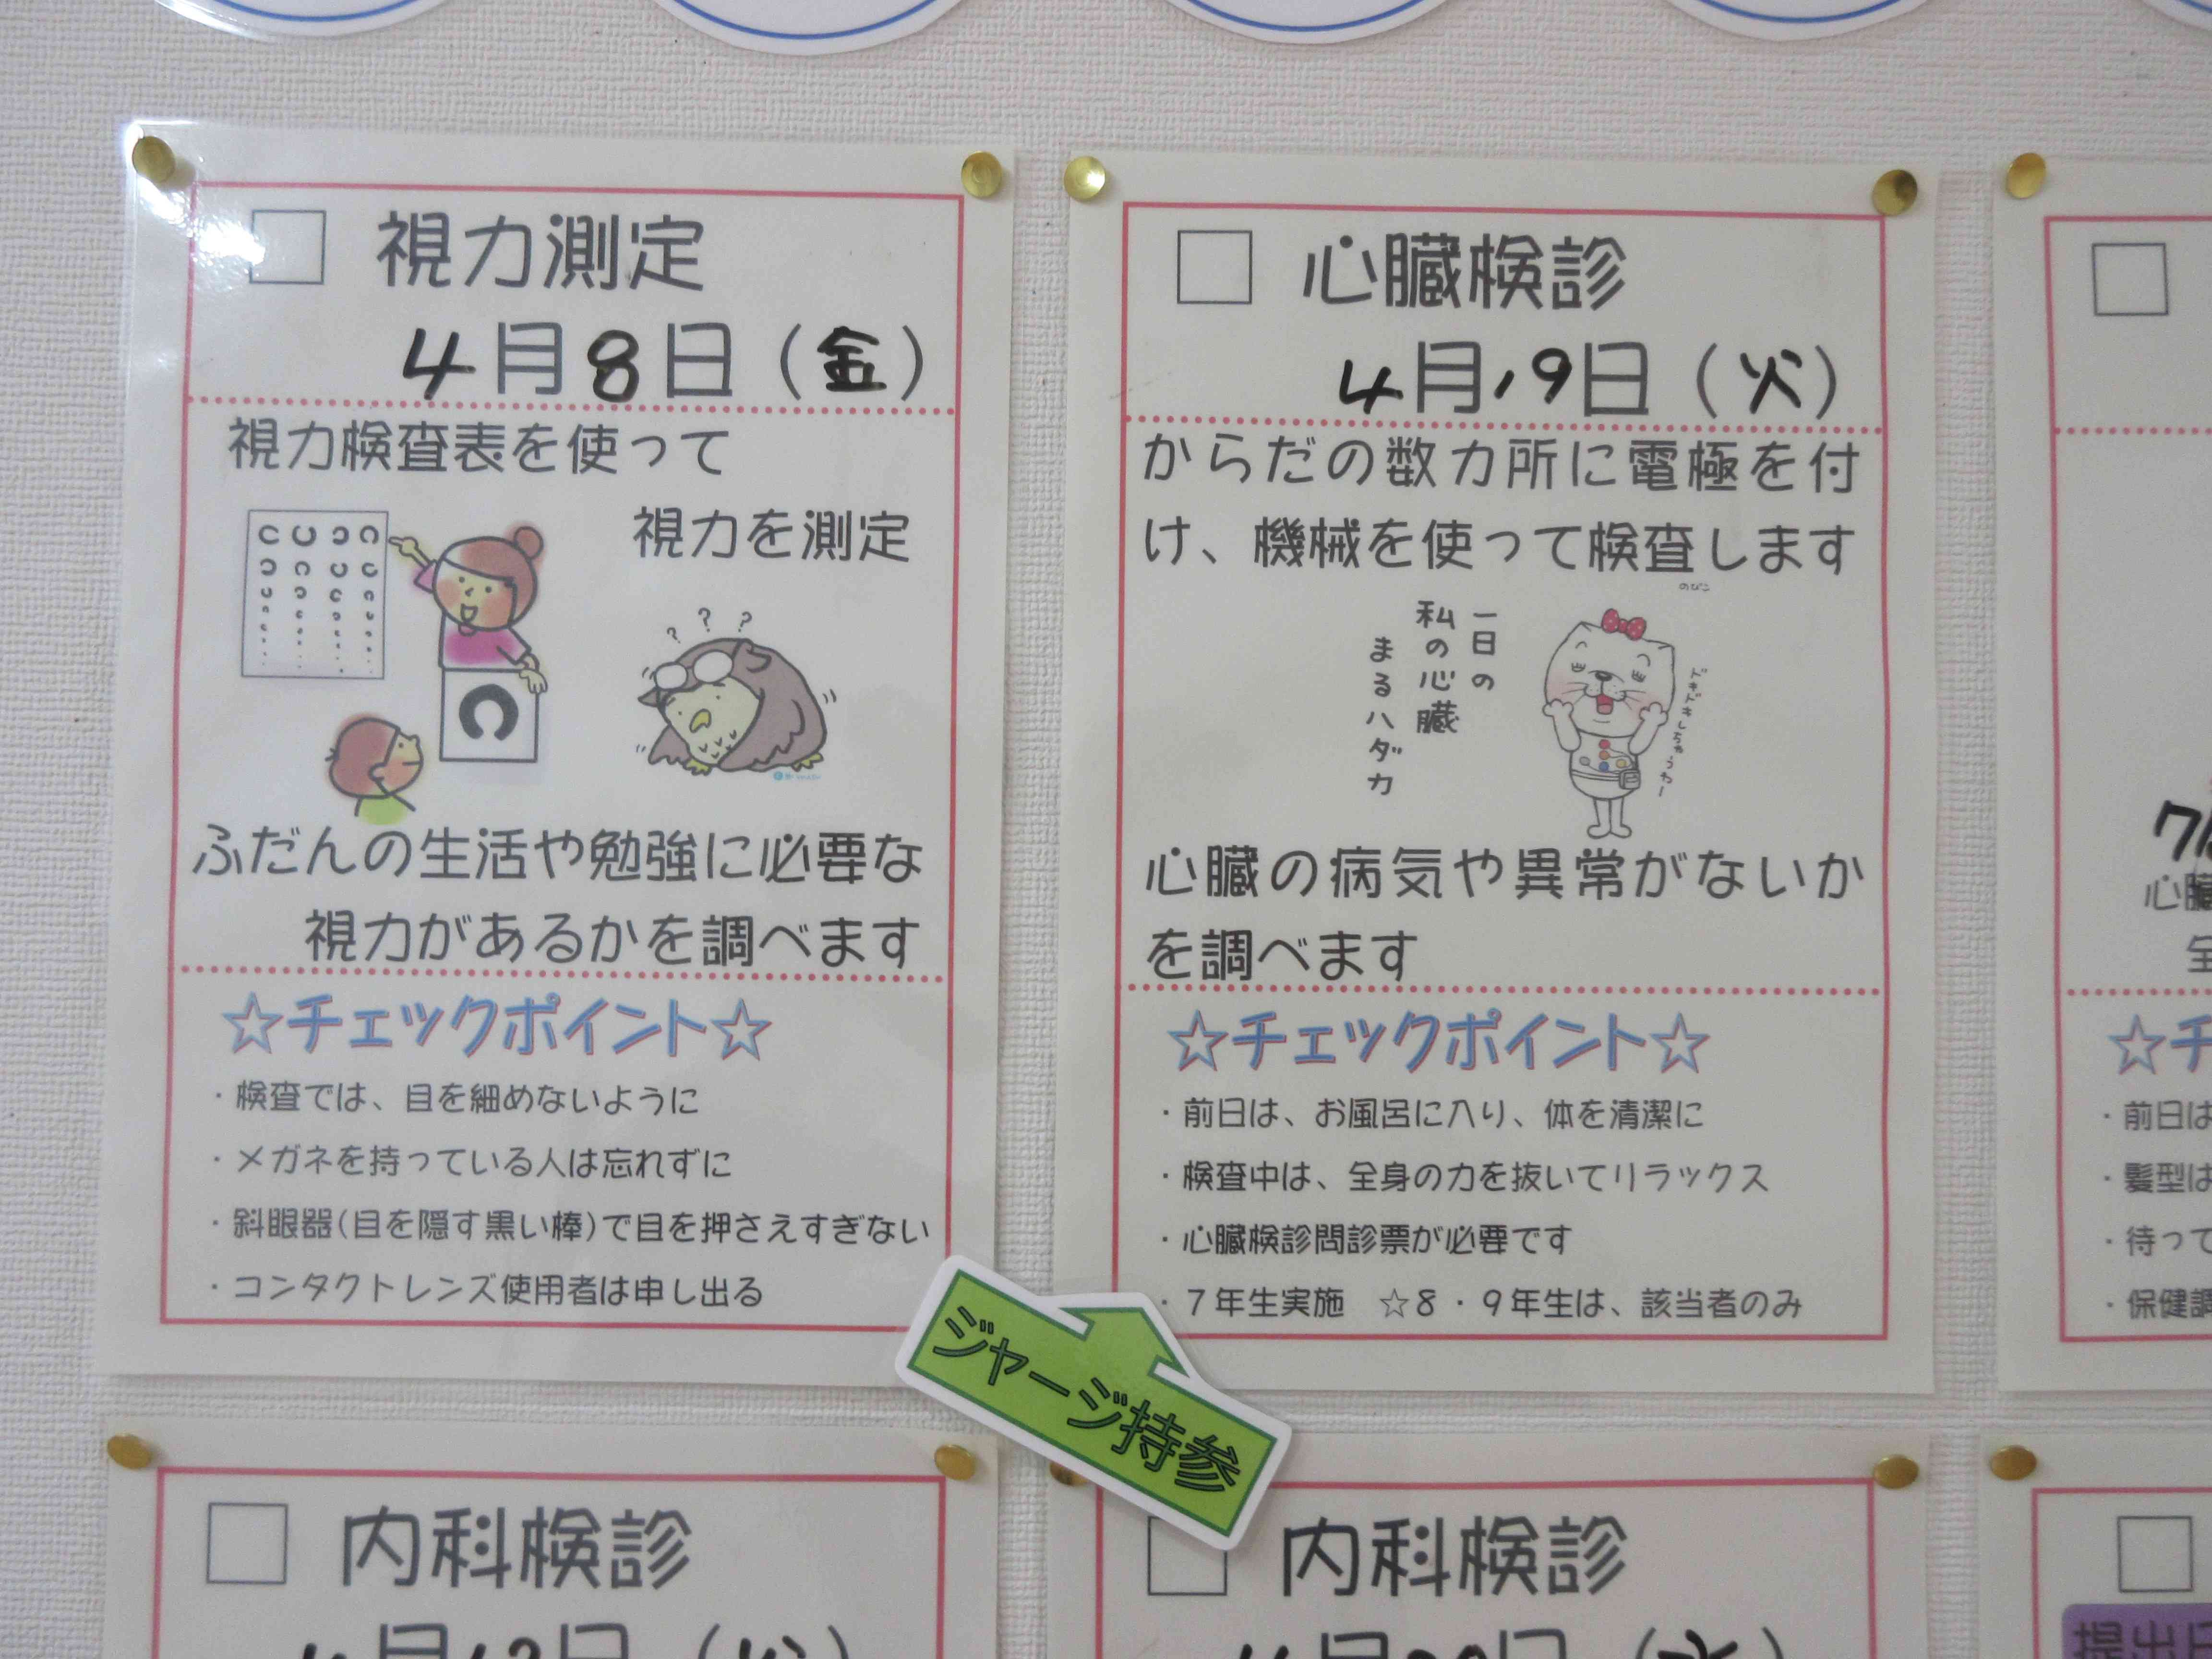 視力測定
4月8日（金）
視力検査表を使って
視力を測定
C
? ? ?
ふだんの生活や勉強に必要な
視力があるかを調べます
☆チェックポイント☆
・検査では、目を細めないように
・メガネを持っている人は忘れずに
・斜眼器(目を隠す黒い棒)で目を押さえすぎない
・コンタクトレンズ使用者は申し出る
心臓検診
4月19日（火）
からだの数カ所に電極を付
け、機械を使って検査します
のびこ
一日の
私の心臓
まるハダカ
ドキドキしちゃうわー
心臓の病気や異常がないか
を調べます
☆チェックポイント☆
・前日は、お風呂に入り、体を清潔に
・検査中は、全身の力を抜いてリラックス
・心臓検診問診票が必要です
・７年生実施　☆８・９年生は、該当者のみ
ジャージ持参
心臓
全
☆チ
・前日は
・髪型は
・待って
・保健調
内科検診
内科検診
提出日